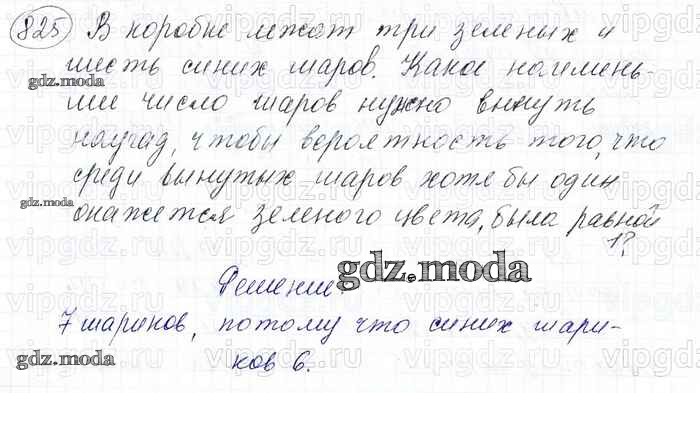 825 В коробке лежат три зеленых и
шесть синих шаров. Какое наимень-
шее число шаров нужно вынуть
наугад, чтобы вероятность того, что
среди вынутых шаров хотя бы один
окажется зеленого цвета, была равной
1?
Решение
7 шариков, потому что синих шари-
ков 6.
gdz.moda
gdz.moda
gdz.moda
gdz.moda
vipgdz.ru